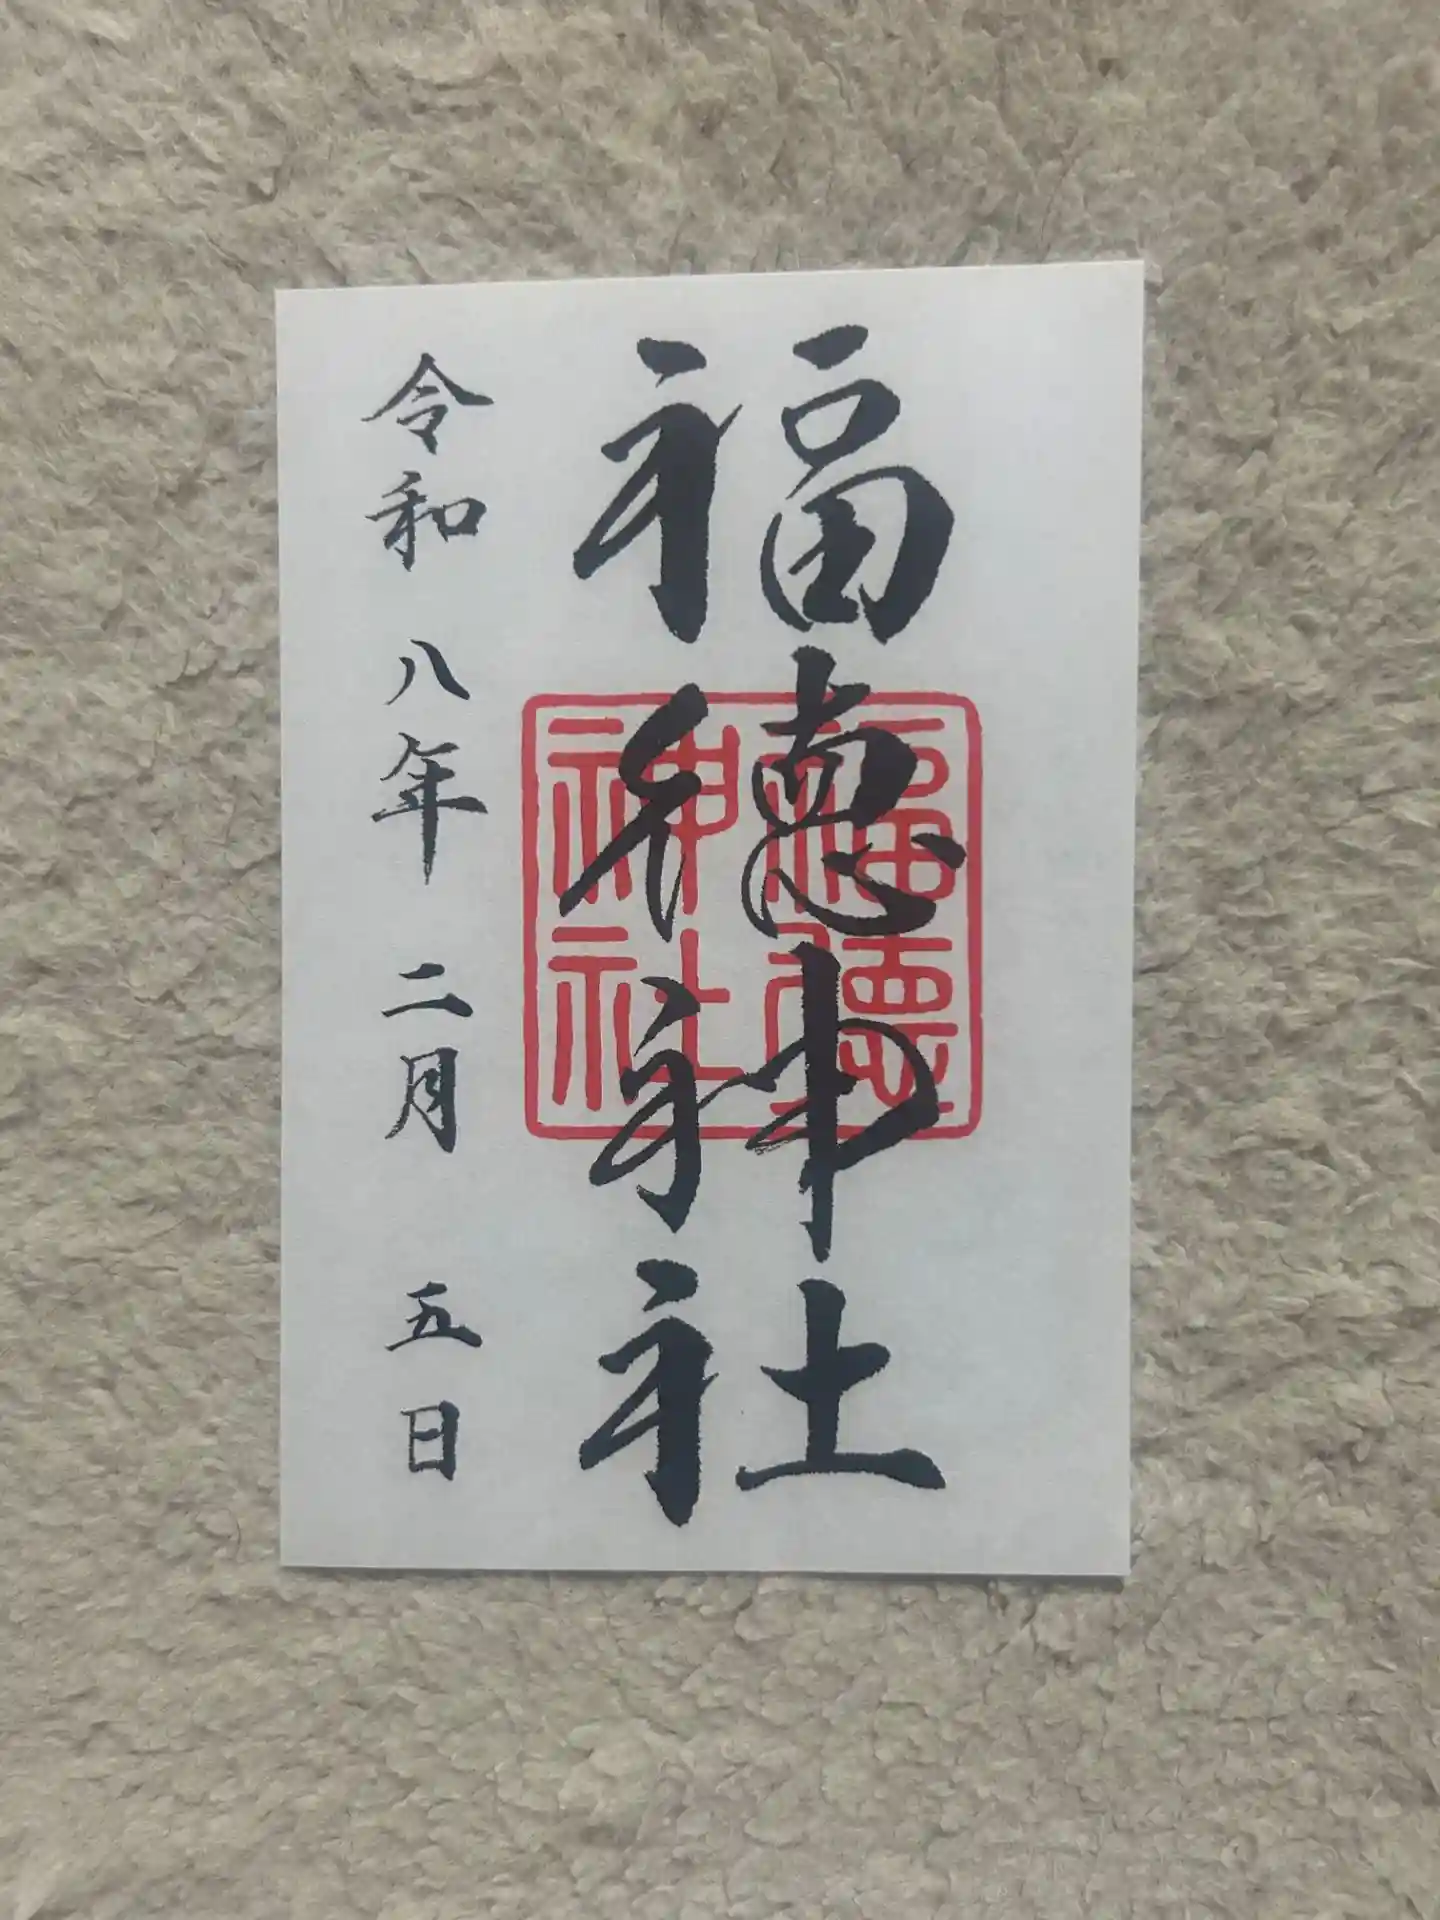 福德神社
福德神社
令和八年二月五日